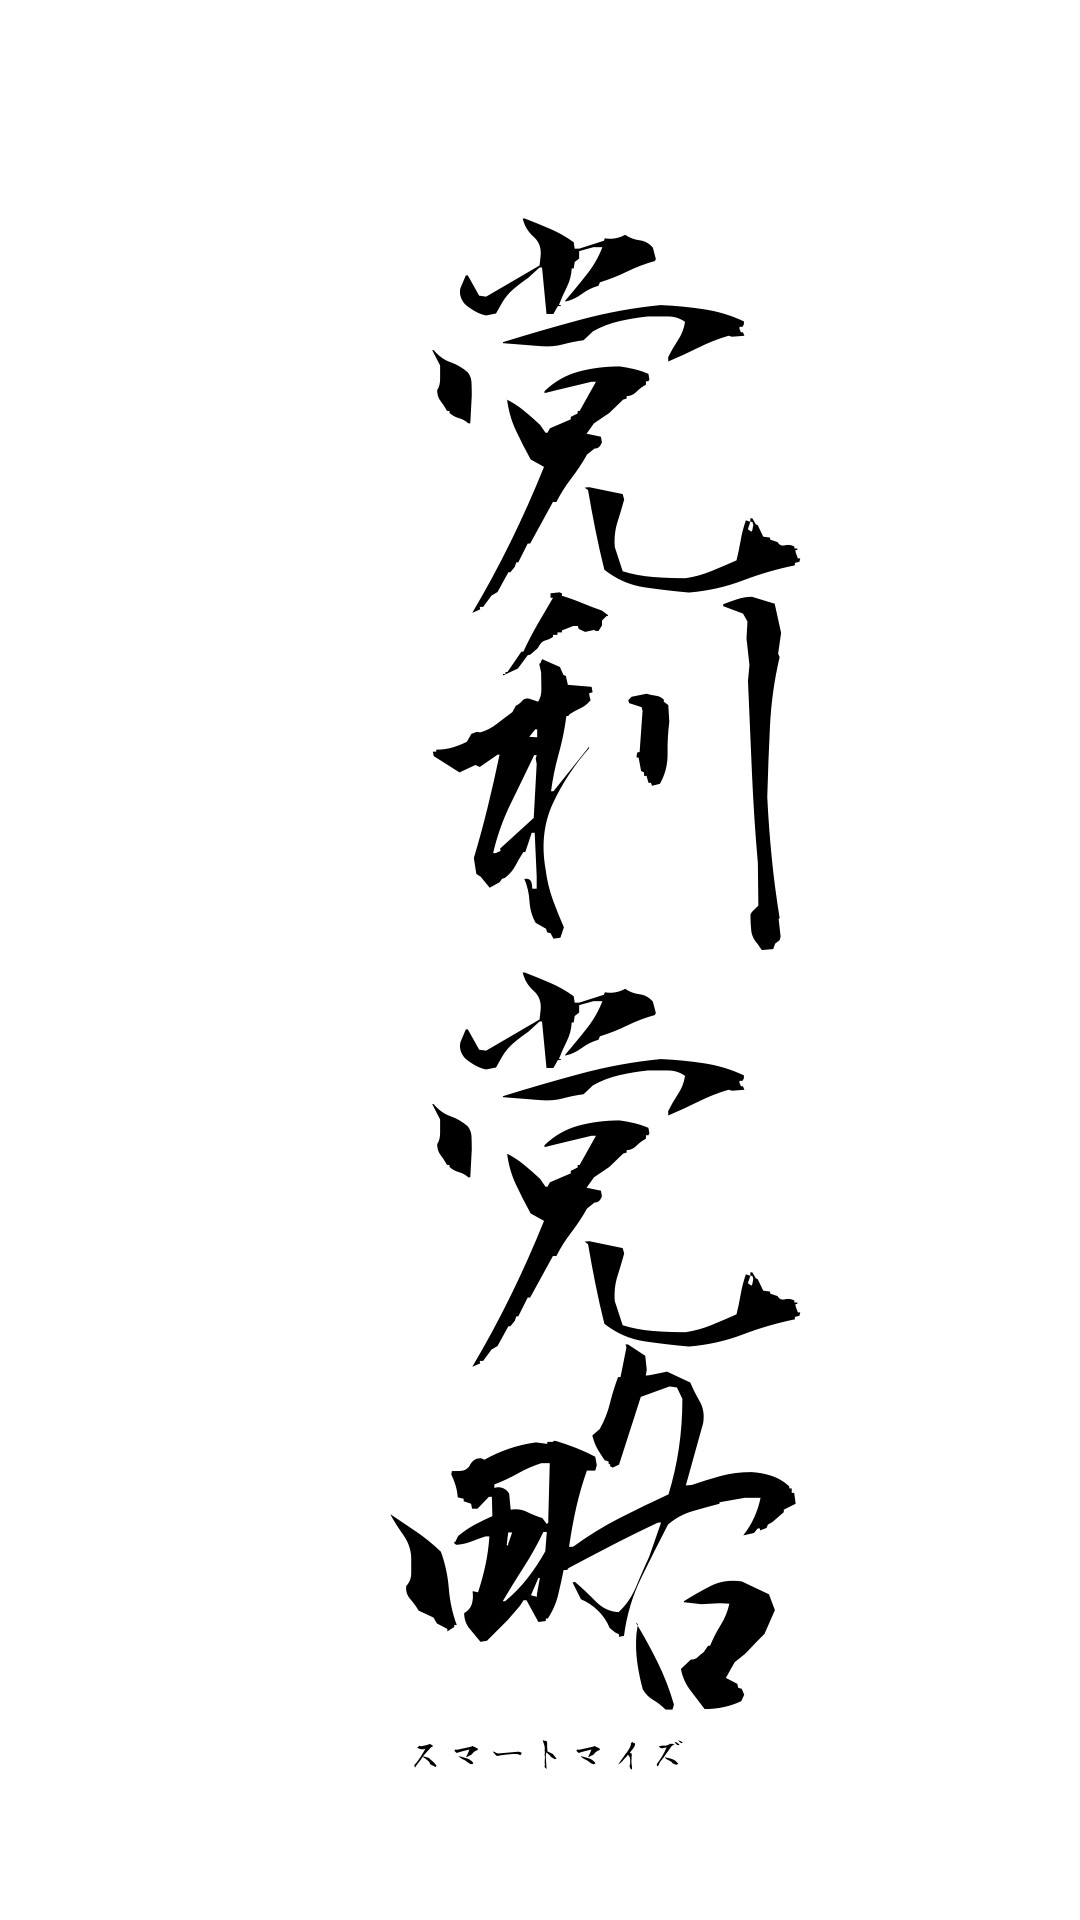 党利党略
スマートマイズ